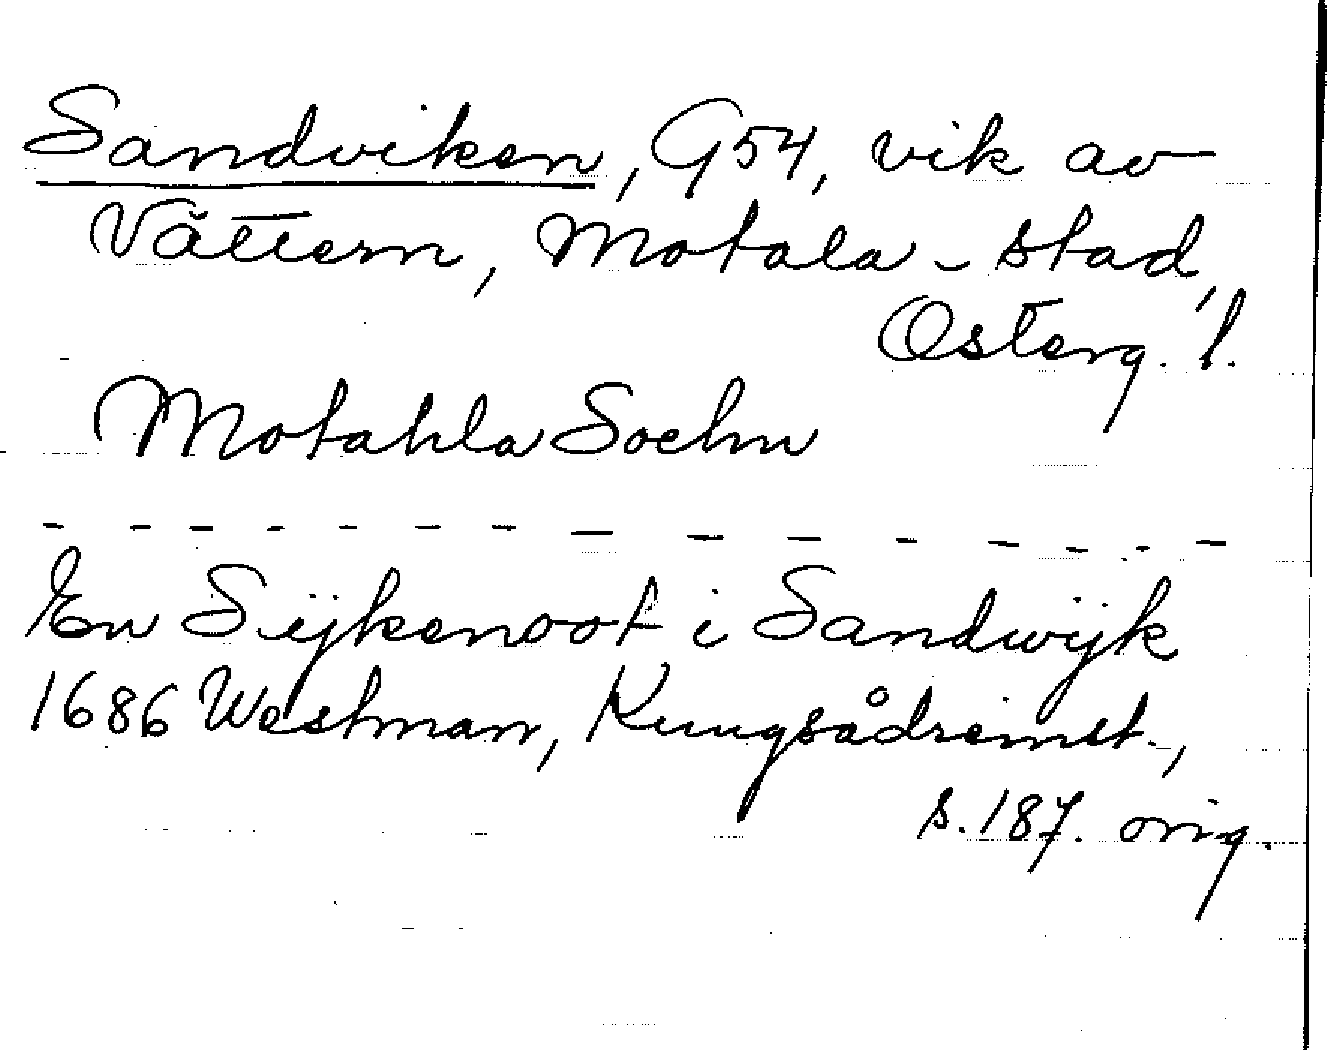 Sandviken, G54, vik av
Vättern, Motala-stad,
Österg. l.
Motahla Sochn
- - - - - - - - - - - - - - -
En Sijkenoot i Sandwijk
1686 Westman, Kungsådreinst.,
s. 187. orig.